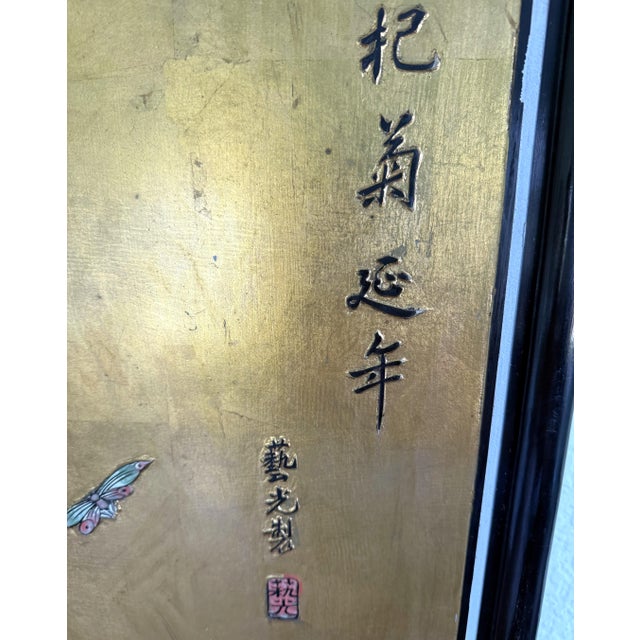 杞菊延年
藝光製
藝光